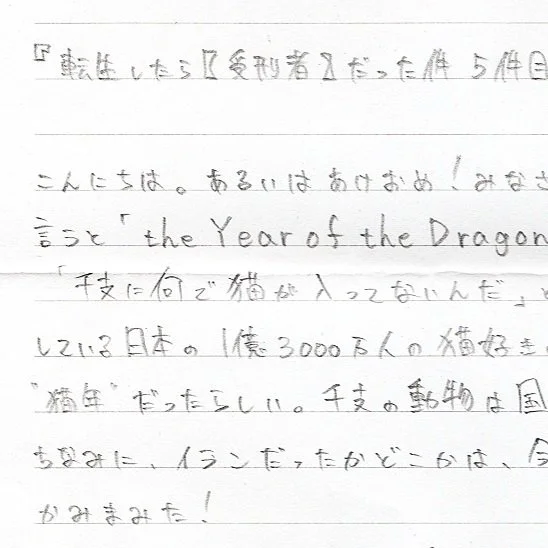 『転生したら【受刑者】だった件 5件目
こんにちは。あるいはあけおめ!みなさ
言うと「the Year of the Dragon
「干支に何で猫が入ってないんだ」と
している日本の1億3000万人の猫好き
"猫年"だったらしい。干支の動物は国
ちなみに、イランだったかどこかは、今
かみまみた!